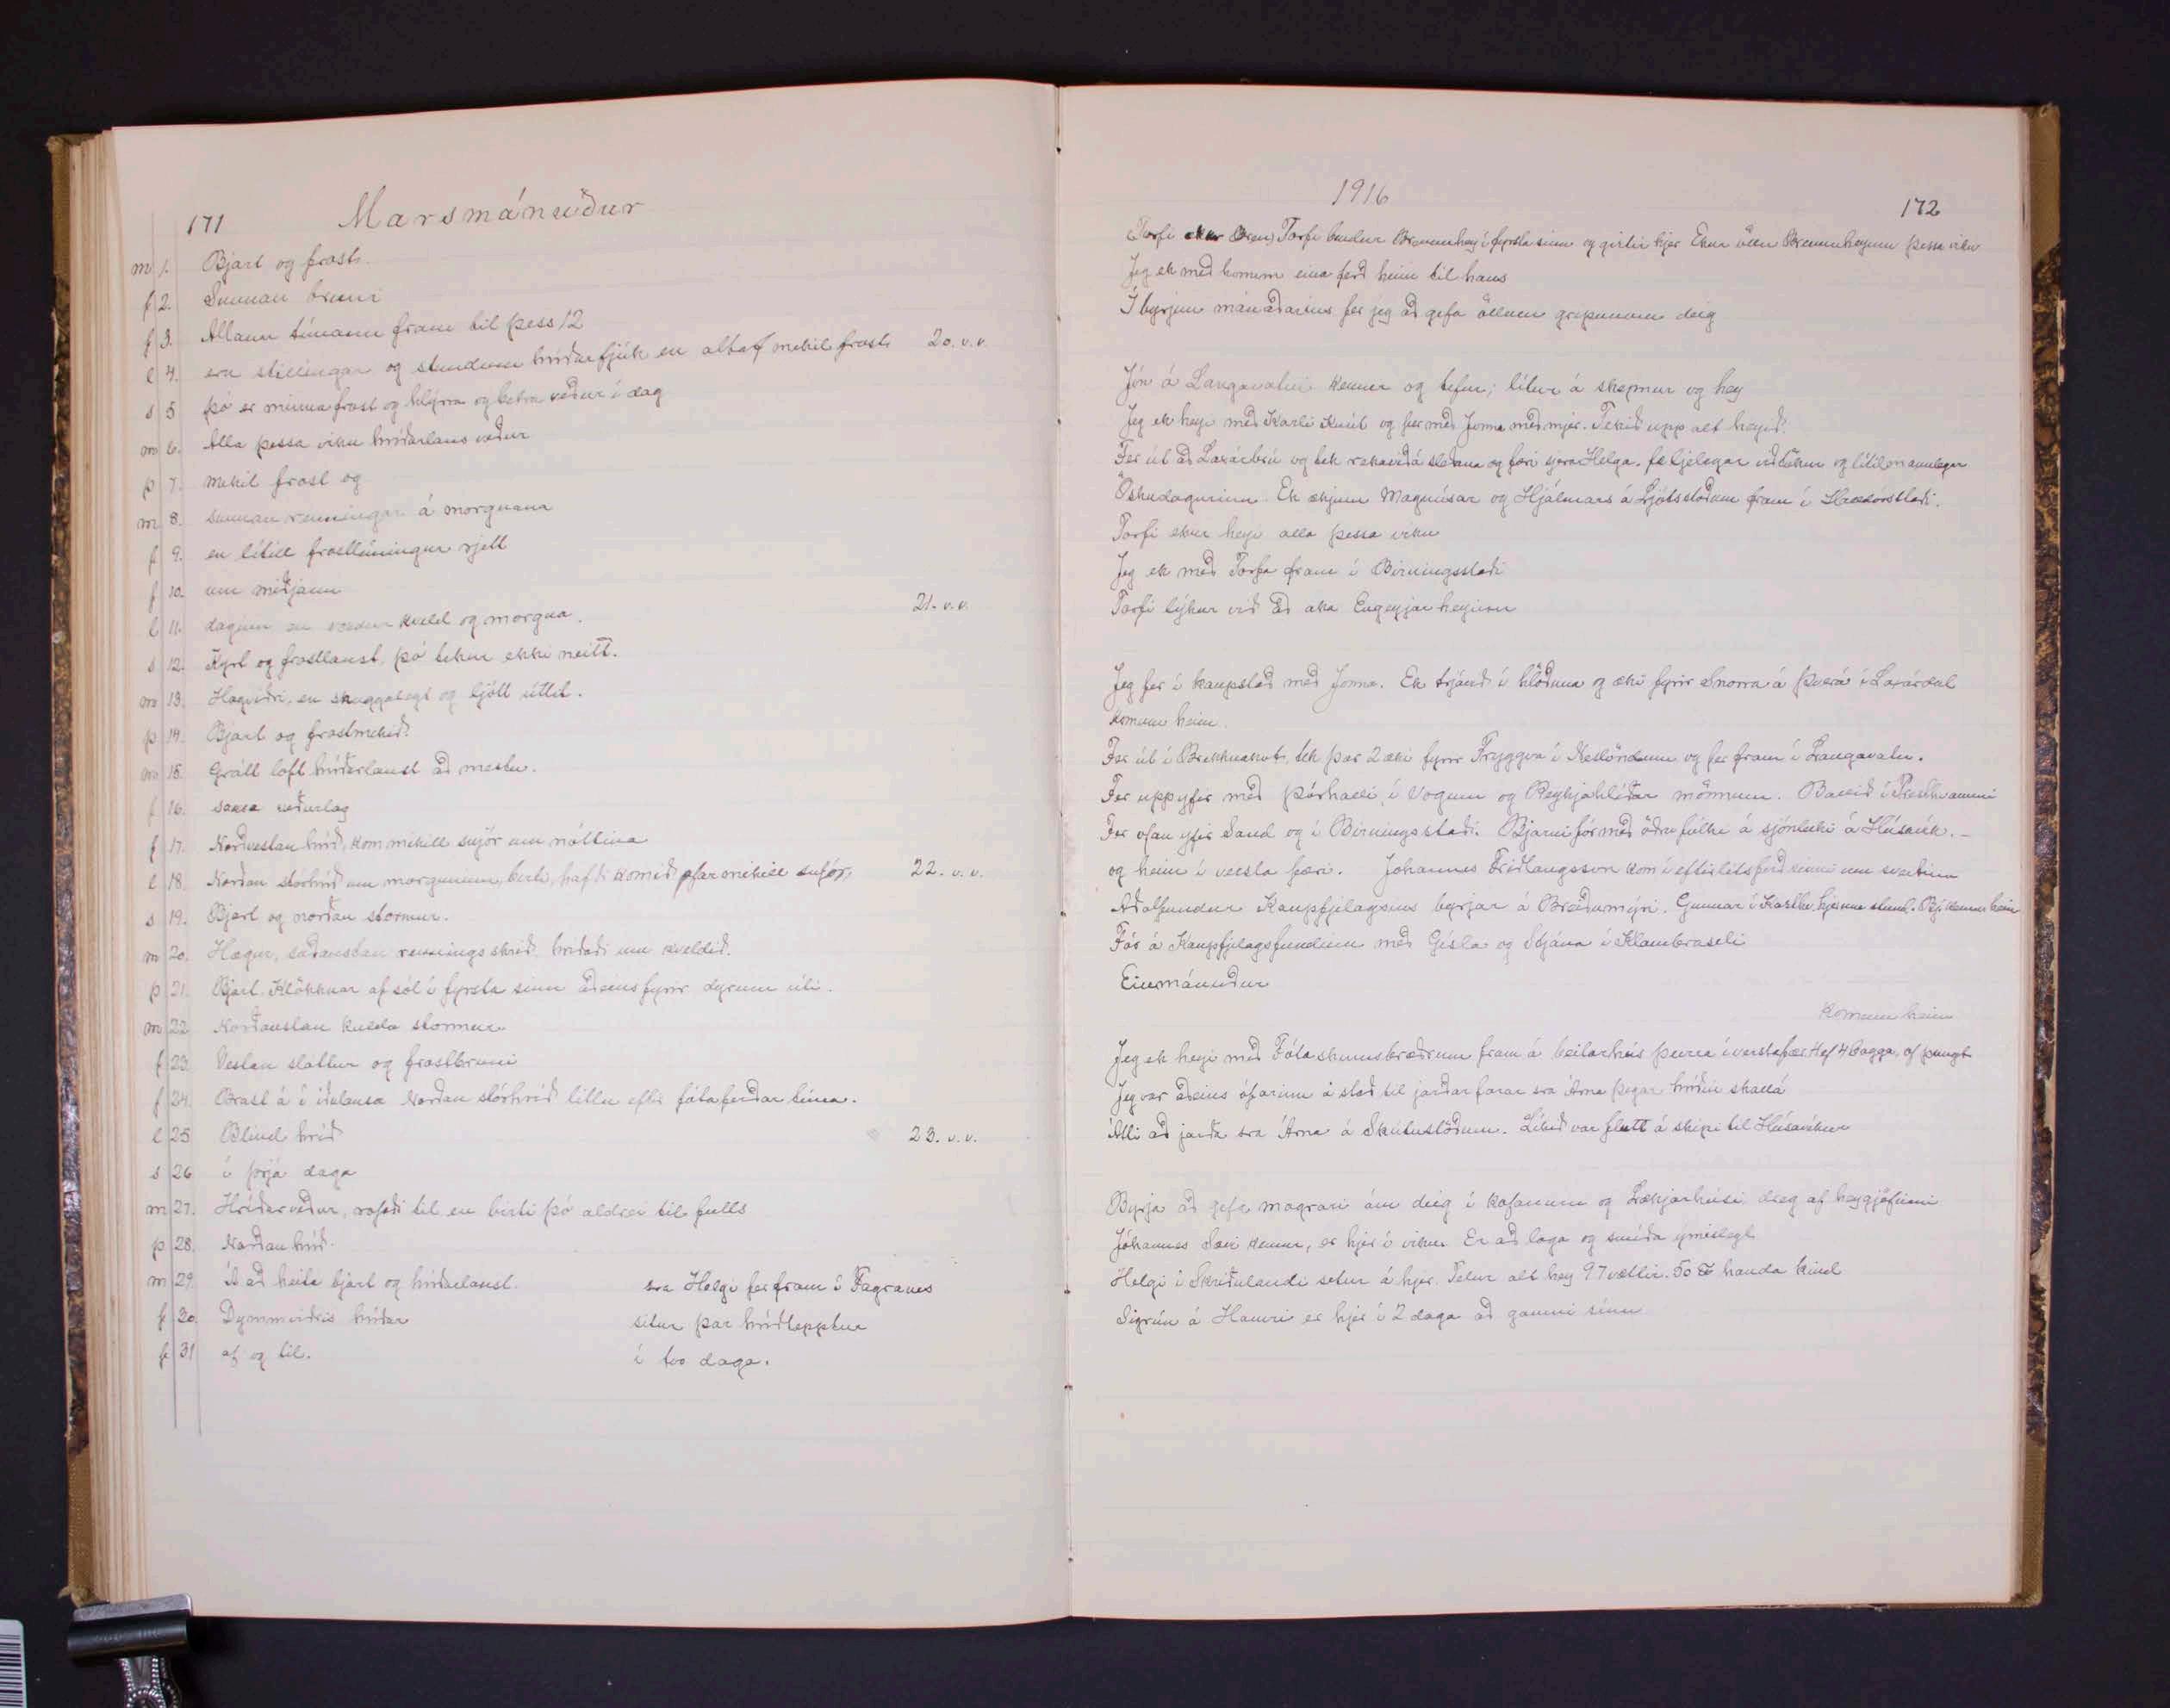 171 Marsmánuður
m 1. Bjart og frost.
f 2. Sunnan bruni
f 3. Allann tímann fram til þess 12
l 4. eru stillingar og stundum hríðarfjúk en altaf mikil frost 20. v.v.
s 5 þó er minna frost og hlýrra og betra veður í dag
m 6. Alla þessa viku hríðarlaus veður
þ 7. mikil frost og
m 8. sunnan renningar á morgnana
f 9. en lítill frostlíningur rjett
f 10. um miðjann
l 11. daginn en kveld og morgna. 21. v.v.
s 12. Kyrt og frostlaust, þó tekur ekki neitt.
m 13. Hægviðri, en skuggalegt og ljótt útlit.
þ 14. Bjart og frostmikið.
m 15. Grátt loft hríðarlaust að mestu.
f 16. sama veðurlag
f 17. Norðvestan hríð, kom mikill snjór um nóttina
l 18. Norðan stórhríð um morguninn, birti, hafði komið ofsa mikill snjór, 22. v.v.
s 19. Bjart og norðan stormur.
m 20. Hægur, suðaustan rennings skrið hríðaði um kveldið.
þ 21. Bjart. Klökknar af sól í fyrsta sinn aðeins fyrir dyrum úti.
m 22 Norðaustan kulda stormur
f 23. Vestan slattur og frostbruni
f 24. Brast á í iðulausa Norðan stórhríð litlu eftir fótaferðar tíma.
l 25 Blind hríð 23. v.v.
s 26 í þrjá daga
m 27. Hríðarveður, rofaði til en birti þó aldrei til fulls
þ 28. Norðan hríð.
m 29. Á að heita bjart og hríðarlaust. sra Helgi fer fram í Fagranes
f 30. Dymmviðris hríðar situr þar hríðteptur
f 31 af og til. í tvo daga.
1916 172
Torfi Torfi bindur Brunnhey í fyrsta sinn og girtir hjer Ekur öllu Brunnheyinu þessa viku
Jeg ek með honum eina ferð heim til hans
Í byrjun mánaðarins fer jeg að gefa öllum gripunum deig
Jón á Langavatni kemur og tefur; lítur á skepnur og hey
Jeg ek heyi með Karli Knút og fer með Jonna með mjer. Tekið upp alt heyið.
Fer út að Laxárbrú og tek rekavið á sleðana og færi sjera Helga. fæ ljelegar viðtökur og lítilmannlegar
Öskudagurinn. Ek ækjum Magnúsar og Hjálmars á Ljótsstöðum fram í Halldórsstaði.
Torfi ekur heyi alla þessa viku
Jeg ek með Torfa fram í Birningsstaði
Torfi lýkur við að aka Engeyjar heyinu
Jeg fer í kaupstað með Jonna. Ek trjávið í hlöðuna og æki fyrir Snorra á Þverá í Laxárdal
komum heim.
Fer út í Brekknakot, tek þar 2 æki fyrir Tryggva í Neslöndum og fer fram í Langavatn.
Fer uppyfir með Þórhalli, í Vogum og Reykjahlíðar mönnum. Ballið í Presthvammi
Fer ofan yfir Sand og í Birningsstaði. Bjarni fór með öðru fólki á sjónleiki á Húsavík. -
og heim í versta færi. Johannes Friðlaugsson kom í eftirlitsferð sinni um sveitina
Aðalfundur Kaupfjelagsins byrjar á Breiðumýri. Gunnar í hjer um stund. kemur heim
Fór á Kaupfjelagsfundinn með Gísla og Stjána í Klambraseli
Einmánuður
komum heim
Jeg ek heyi með Fótaskinnsbræðrum fram á beitarhús þeirra í versta fær. Hef 4 bagga, of þungt
Jeg var aðeins ófarinn á stað til jarðarfarar sra Árna þegar hríðin skall á
Átti að jarða sra Árna á Skútustöðum. Líkið var flutt á skipi til Húsavíkur
Byrja að gefa magrari ám deig í kofanum og Lækjarhúsi dreg af heygjöfinni
Jóhannes Sæi kemur, er hjer í viku. Er að laga og smíða ýmislegt
Helgi í Skriðulandi setur á hjer. Telur alt hey 97 vættir. 50 ℔ handa kind
Sigrún á Hamri er hjer í 2 daga að gamni sínu